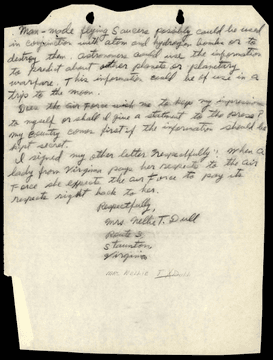 Man-made flying saucers possibly could be used
in conjunction with atom and hydrogen bombs or to
destroy them. Astronomers could use the information
to predict about other planets or planetary
warfare. This information could be of use in a
trips to the moon.
Does the Air Force wish me to keep my impressions
to myself or shall I give a statment to the press?
My country comes first if the information should be
kept secret.
I signed my other letter "respectfully". When a
lady from Virginia pays her respects to the Air
Force she expects the Air Force to pay its
respects right back to her.
Respectfully,
Mrs. Nellie T. Dull
Route 3
Staunton
Virginia